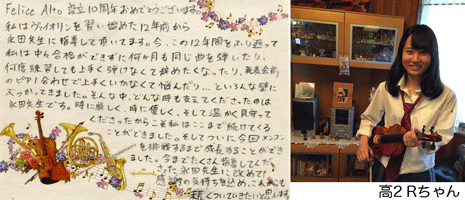 Felice Alto 設立10周年おめでとうございます。
私はヴァイオリンを習い始めた12年前から
永田先生に指導して頂いてます。今、この12年間をふり返って
私は中々合格ができずに何ヶ月も同じ曲を弾いたり、
何度練習しても上手く弾けなくて諦めたくなったり、発表会前
のピアノ合わせで上手くいかなくて悩んだり…といろんな壁に
ぶつかってきました。そんな中、どんな時も支えてくださったのは
永田先生です。時に厳しく、時に優しく、そして温かく見守って
くださったからこそ私はここまで続けてくる
ことができました。そしてついに今回メンコン
を挑戦するまで成長することができ
ました。今までたくさん指導してくだ
さった永田先生にこめて
感謝の気持ちを込め、これからも
精一杯ついていきたいと思います。
高2 Rちゃん